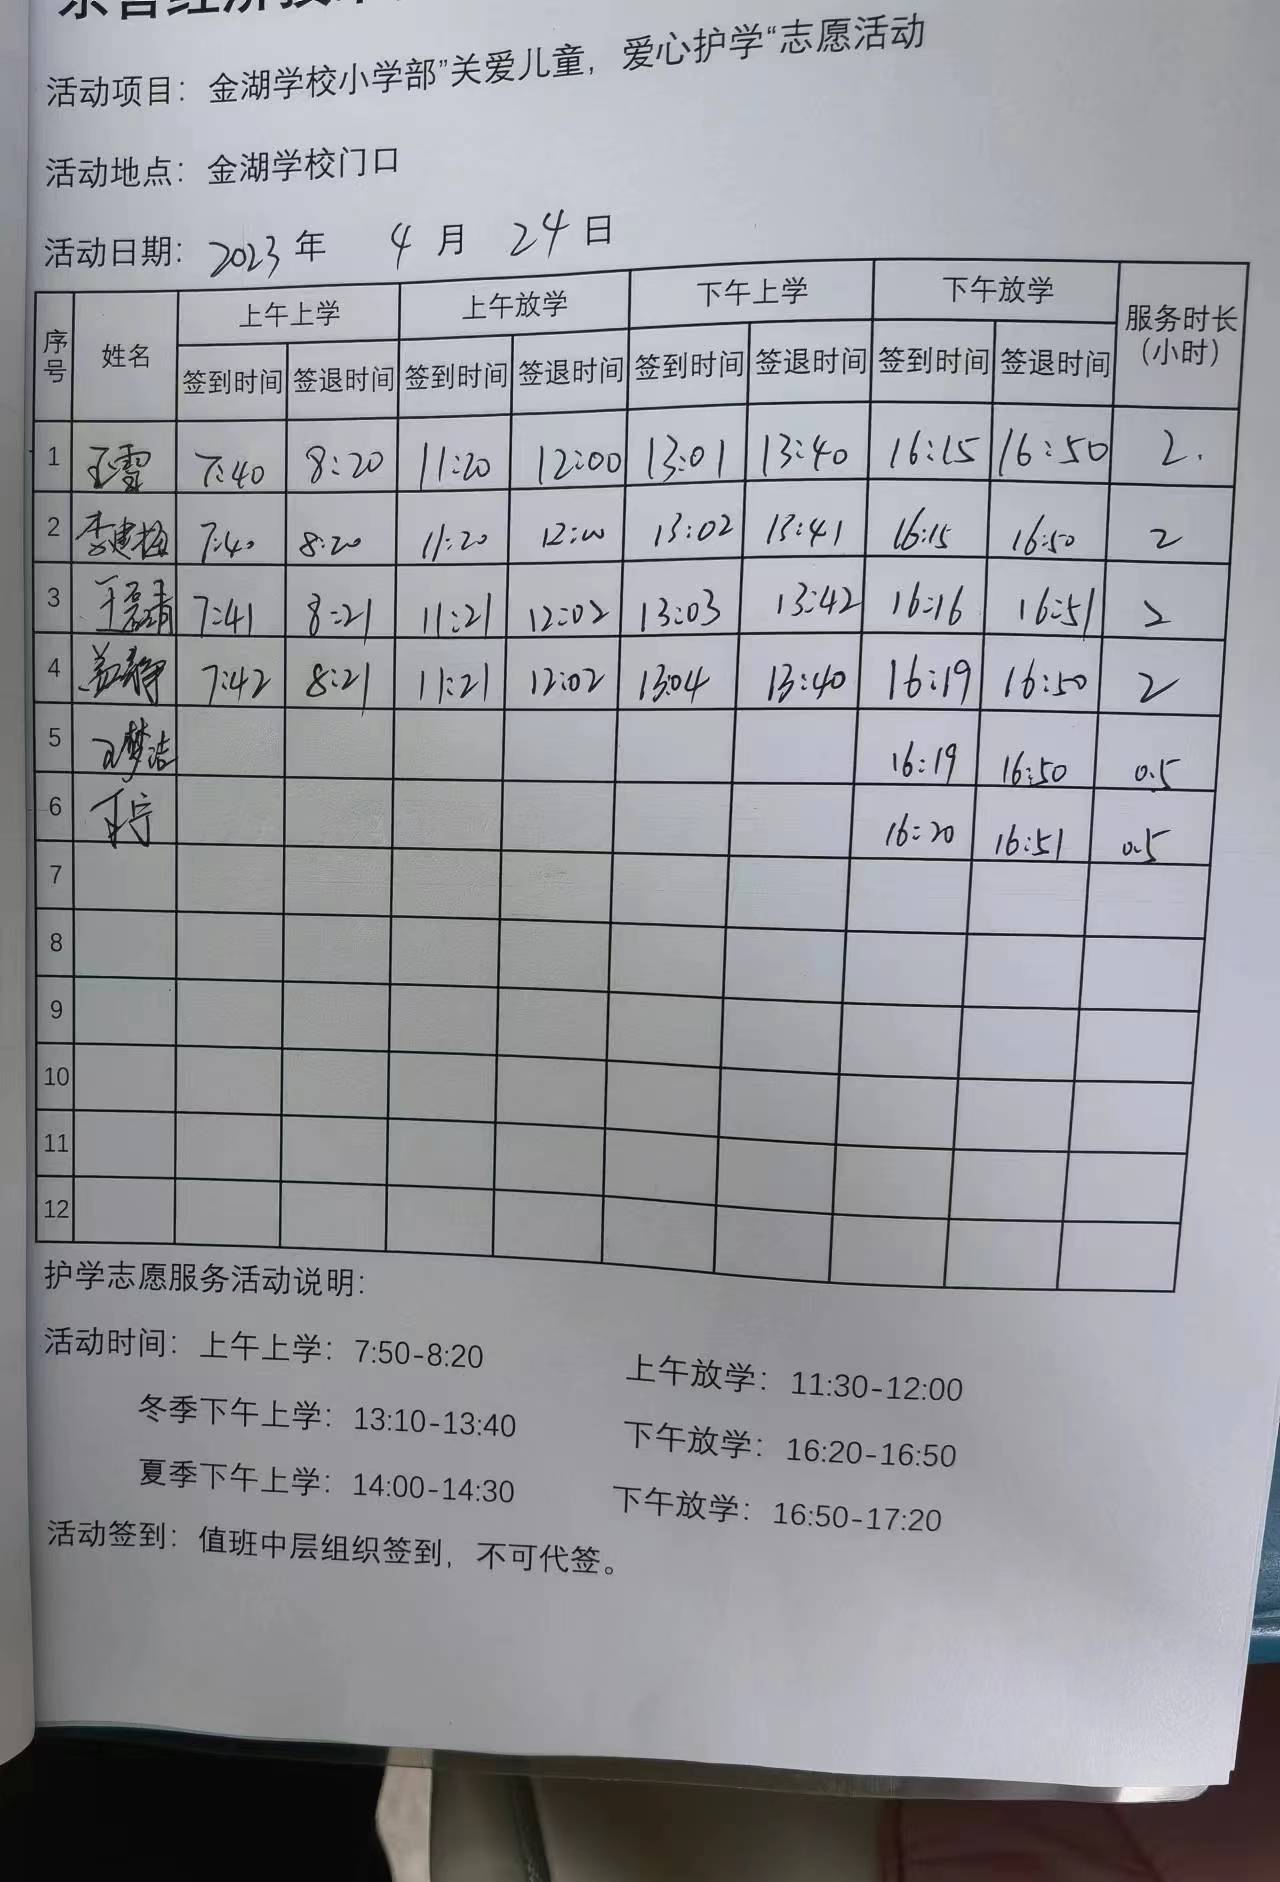 活动项目：金湖学校小学部”关爱儿童，爱心护学“志愿活动
活动地点：金湖学校门口
活动日期：2023 年 4 月 24 日
序号 姓名 上午上学 上午放学 下午上学 下午放学 服务时长（小时）
签到时间 签退时间 签到时间 签退时间 签到时间 签退时间 签到时间 签退时间
1 王雪 7:40 8:20 11:20 12:00 13:01 13:40 16:15 16:50 2.
2 李建梅 7:40 8:20 11:20 12:00 13:02 13:41 16:15 16:50 2
3 王磊清 7:41 8:21 11:21 12:02 13:03 13:42 16:16 16:51 2
4 7:42 8:21 11:21 12:02 13:04 13:40 16:19 16:50 2
5 王梦洁 16:19 16:50 0.5
6 16:20 16:51 0.5
7
8
9
10
11
12
护学志愿服务活动说明：
活动时间：上午上学：7:50-8:20 上午放学：11:30-12:00
冬季下午上学：13:10-13:40 下午放学：16:20-16:50
夏季下午上学：14:00-14:30 下午放学：16:50-17:20
活动签到：值班中层组织签到，不可代签。